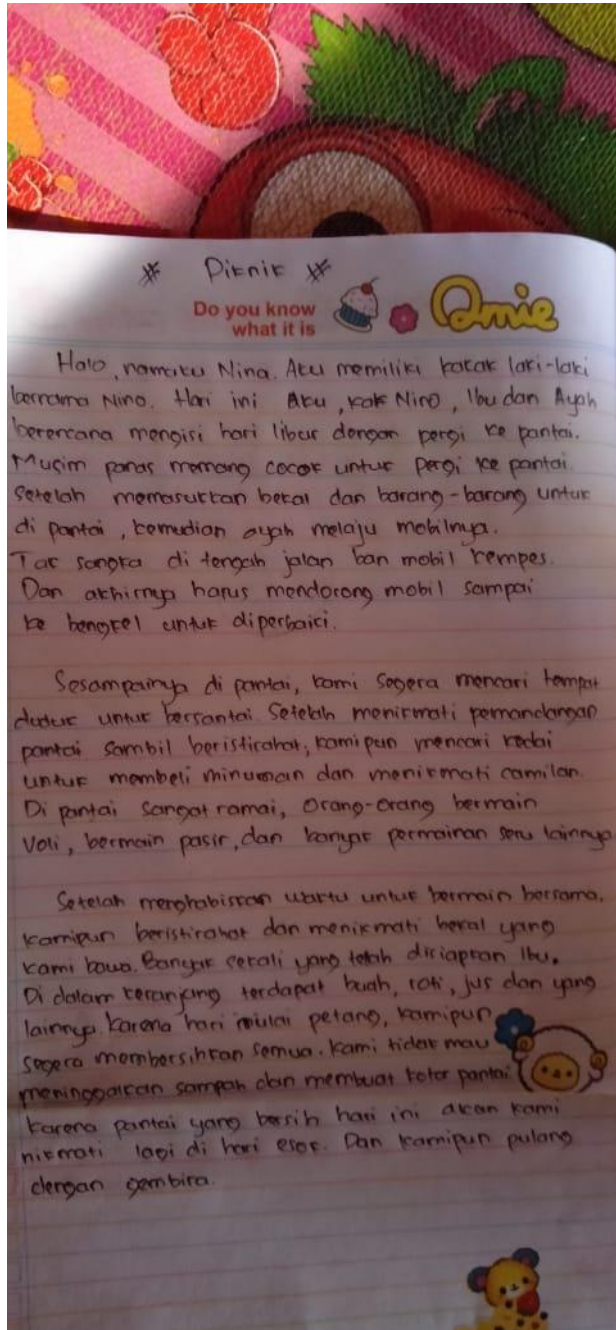 # Piknik #
Do you know
what it is
Qmie
Halo, namaku Nina. Aku memiliki kakak laki-laki
bernama Nino. Hari ini Aku, kak Nino, Ibu dan Ayah
berencana mengisi hari libur dengan pergi ke pantai.
Musim panas memang cocok untuk pergi ke pantai.
Setelah memasukkan bekal dan barang-barang untuk
di pantai, kemudian ayah melaju mobilnya.
Tak sangka di tengah jalan ban mobil kempes.
Dan akhirnya harus mendorong mobil sampai
ke bengkel untuk diperbaiki.
Sesampainya di pantai, kami segera mencari tempat
duduk untuk bersantai. Setelah menikmati pemandangan
pantai sambil beristirahat, kamipun mencari kedai
untuk membeli minuman dan menikmati camilan.
Di pantai sangat ramai, Orang-orang bermain
Voli, bermain pasir, dan banyak permainan seru lainnya.
Setelah menghabiskan waktu untuk bermain bersama.
kamipun beristirahat dan menikmati bekal yang
kami bawa. Banyak sekali yang telah disiapkan Ibu.
Di dalam keranjang terdapat buah, roti, jus dan yang
lainnya. Karena hari mulai petang, kamipun
segera membersihkan semua. Kami tidak mau
meninggalkan sampah dan membuat kotor pantai.
Karena pantai yang bersih hari ini akan kami
nikmati lagi di hari esok. Dan kamipun pulang
dengan gembira.